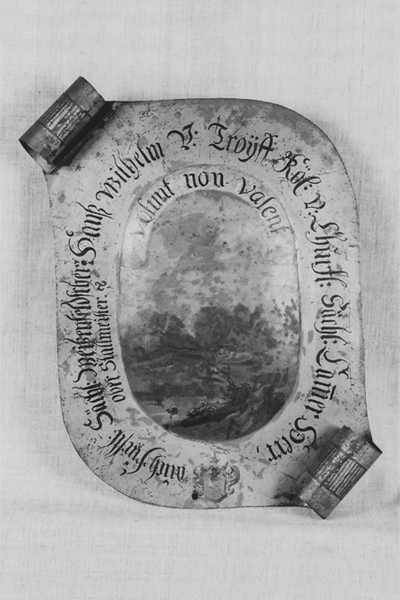 Hanß Wilhelm V: Troÿff Kön: v. Churf: Sächß: Camer Herr,
auch Fürstl: Sächß: Weißenfelßischer
ober Stallmeister &
volunt non valent